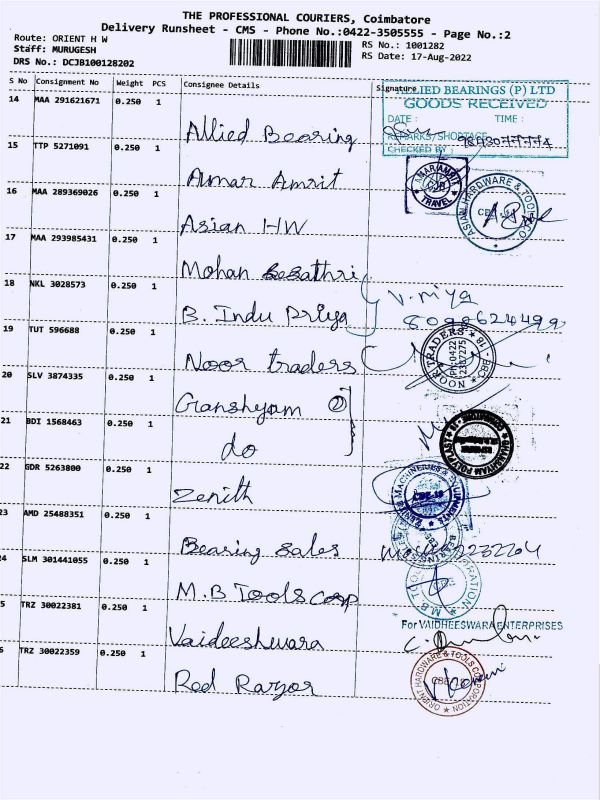 THE PROFESSIONAL COURIERS, Coimbatore
Delivery Runsheet - CMS - Phone No.:0422-3505555 - Page No.:2
Route: ORIENT H W
Staff: MURUGESH
DRS No.: DCJB100128202
RS No.: 1001282
RS Date: 17-Aug-2022
S No Consignment No Weight PCS Consignee Details Signature
ALLIED BEARINGS (P) LTD
GOODS RECEIVED
DATE : TIME :
REMARKS/SHORTAGE
CHECKED BY :
14 MAA 291621671 0.250 1 Allied Bearing
15 TTP 5271091 0.250 1 Amar Amrit
AMAR AMRIT TRAVEL
16 MAA 289369026 0.250 1 Asian HW
ASIAN HARDWARE & TOOLS CO
17 MAA 293985431 0.250 1 Mohan
18 NKL 3028573 0.250 1 B. Indu Priya
V. Priya
8098624499
19 TUT 596688 0.250 1 Noor traders
NOOR TRADERS CBE - 18
PH:0422
2387275
20 SLV 3874335 0.250 1 Ganshyam 2
21 BDI 1568463 0.250 1 do
GHANSHYAM POLYPLAST
22 GDR 5263800 0.250 1 Zenith
ZENITH MACHINERIES &
CBE-18
23 AMD 25488351 0.250 1 Bearing Sales
24 SLM 301441055 0.250 1 M.B Tools Corp
M.B. TOOLS CORPORATION
5 TRZ 30022381 0.250 1 Vaideeshwara
For VAIDHEESWARA ENTERPRISES
6 TRZ 30022359 0.250 1 Red Razor
ORIENT HARDWARE & TOOLS CORPORATION
CBE